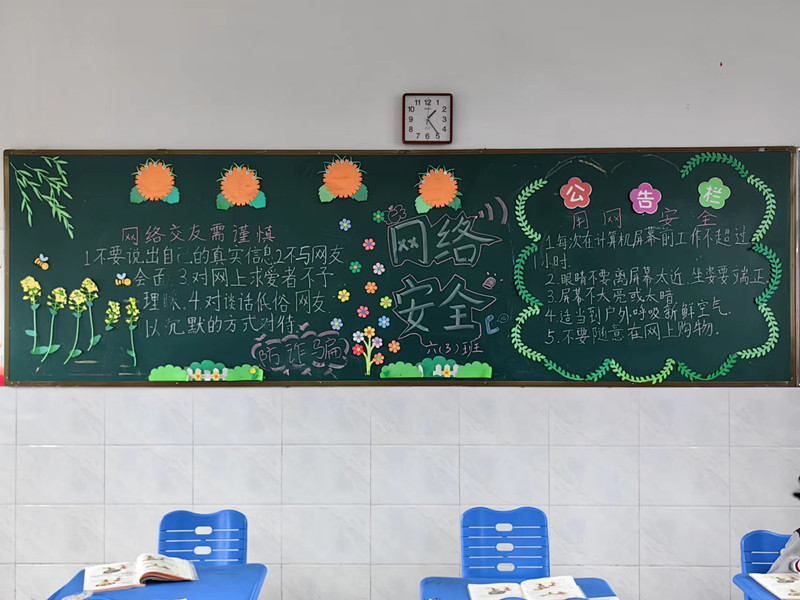 12
11 1
10 2
9 3
8 4
7 6 5
网络交友需谨慎
1.不要说出自己的真实信息2.不与网友
会面.3.对网上求爱者不予
理睬.4.对谈话低俗网友
以沉默的方式对待.
防诈骗
网络
安全
六(3)班
公告栏
用网安全
1.每次在计算机屏幕前工作不超过
1小时.
2.眼睛不要离屏幕太近.坐姿要端正.
3.屏幕不太亮或太暗.
4.适当到户外呼吸新鲜空气.
5.不要随意在网上购物.